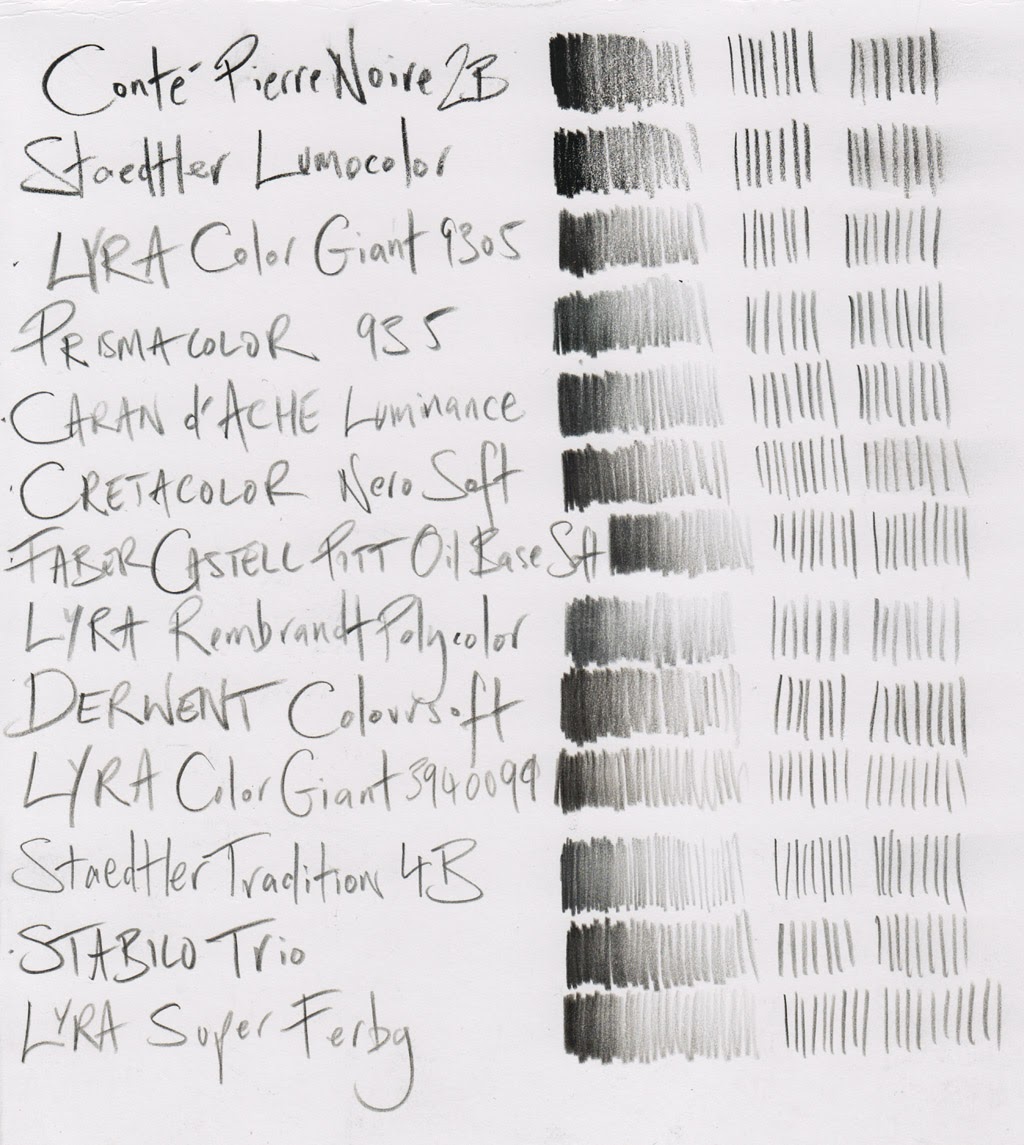 Conté Pierre Noire 2B
Staedtler Lumocolor
LYRA Color Giant 9305
PRISMACOLOR 935
CARAN d'ACHE Luminance
CRETACOLOR Nero Soft
FABER CASTELL PITT Oil Base Soft
LYRA Rembrandt Polycolor
DERWENT Coloursoft
LYRA Color Giant 3940099
Staedtler Tradition 4B
STABILO Trio
LYRA Super Ferby